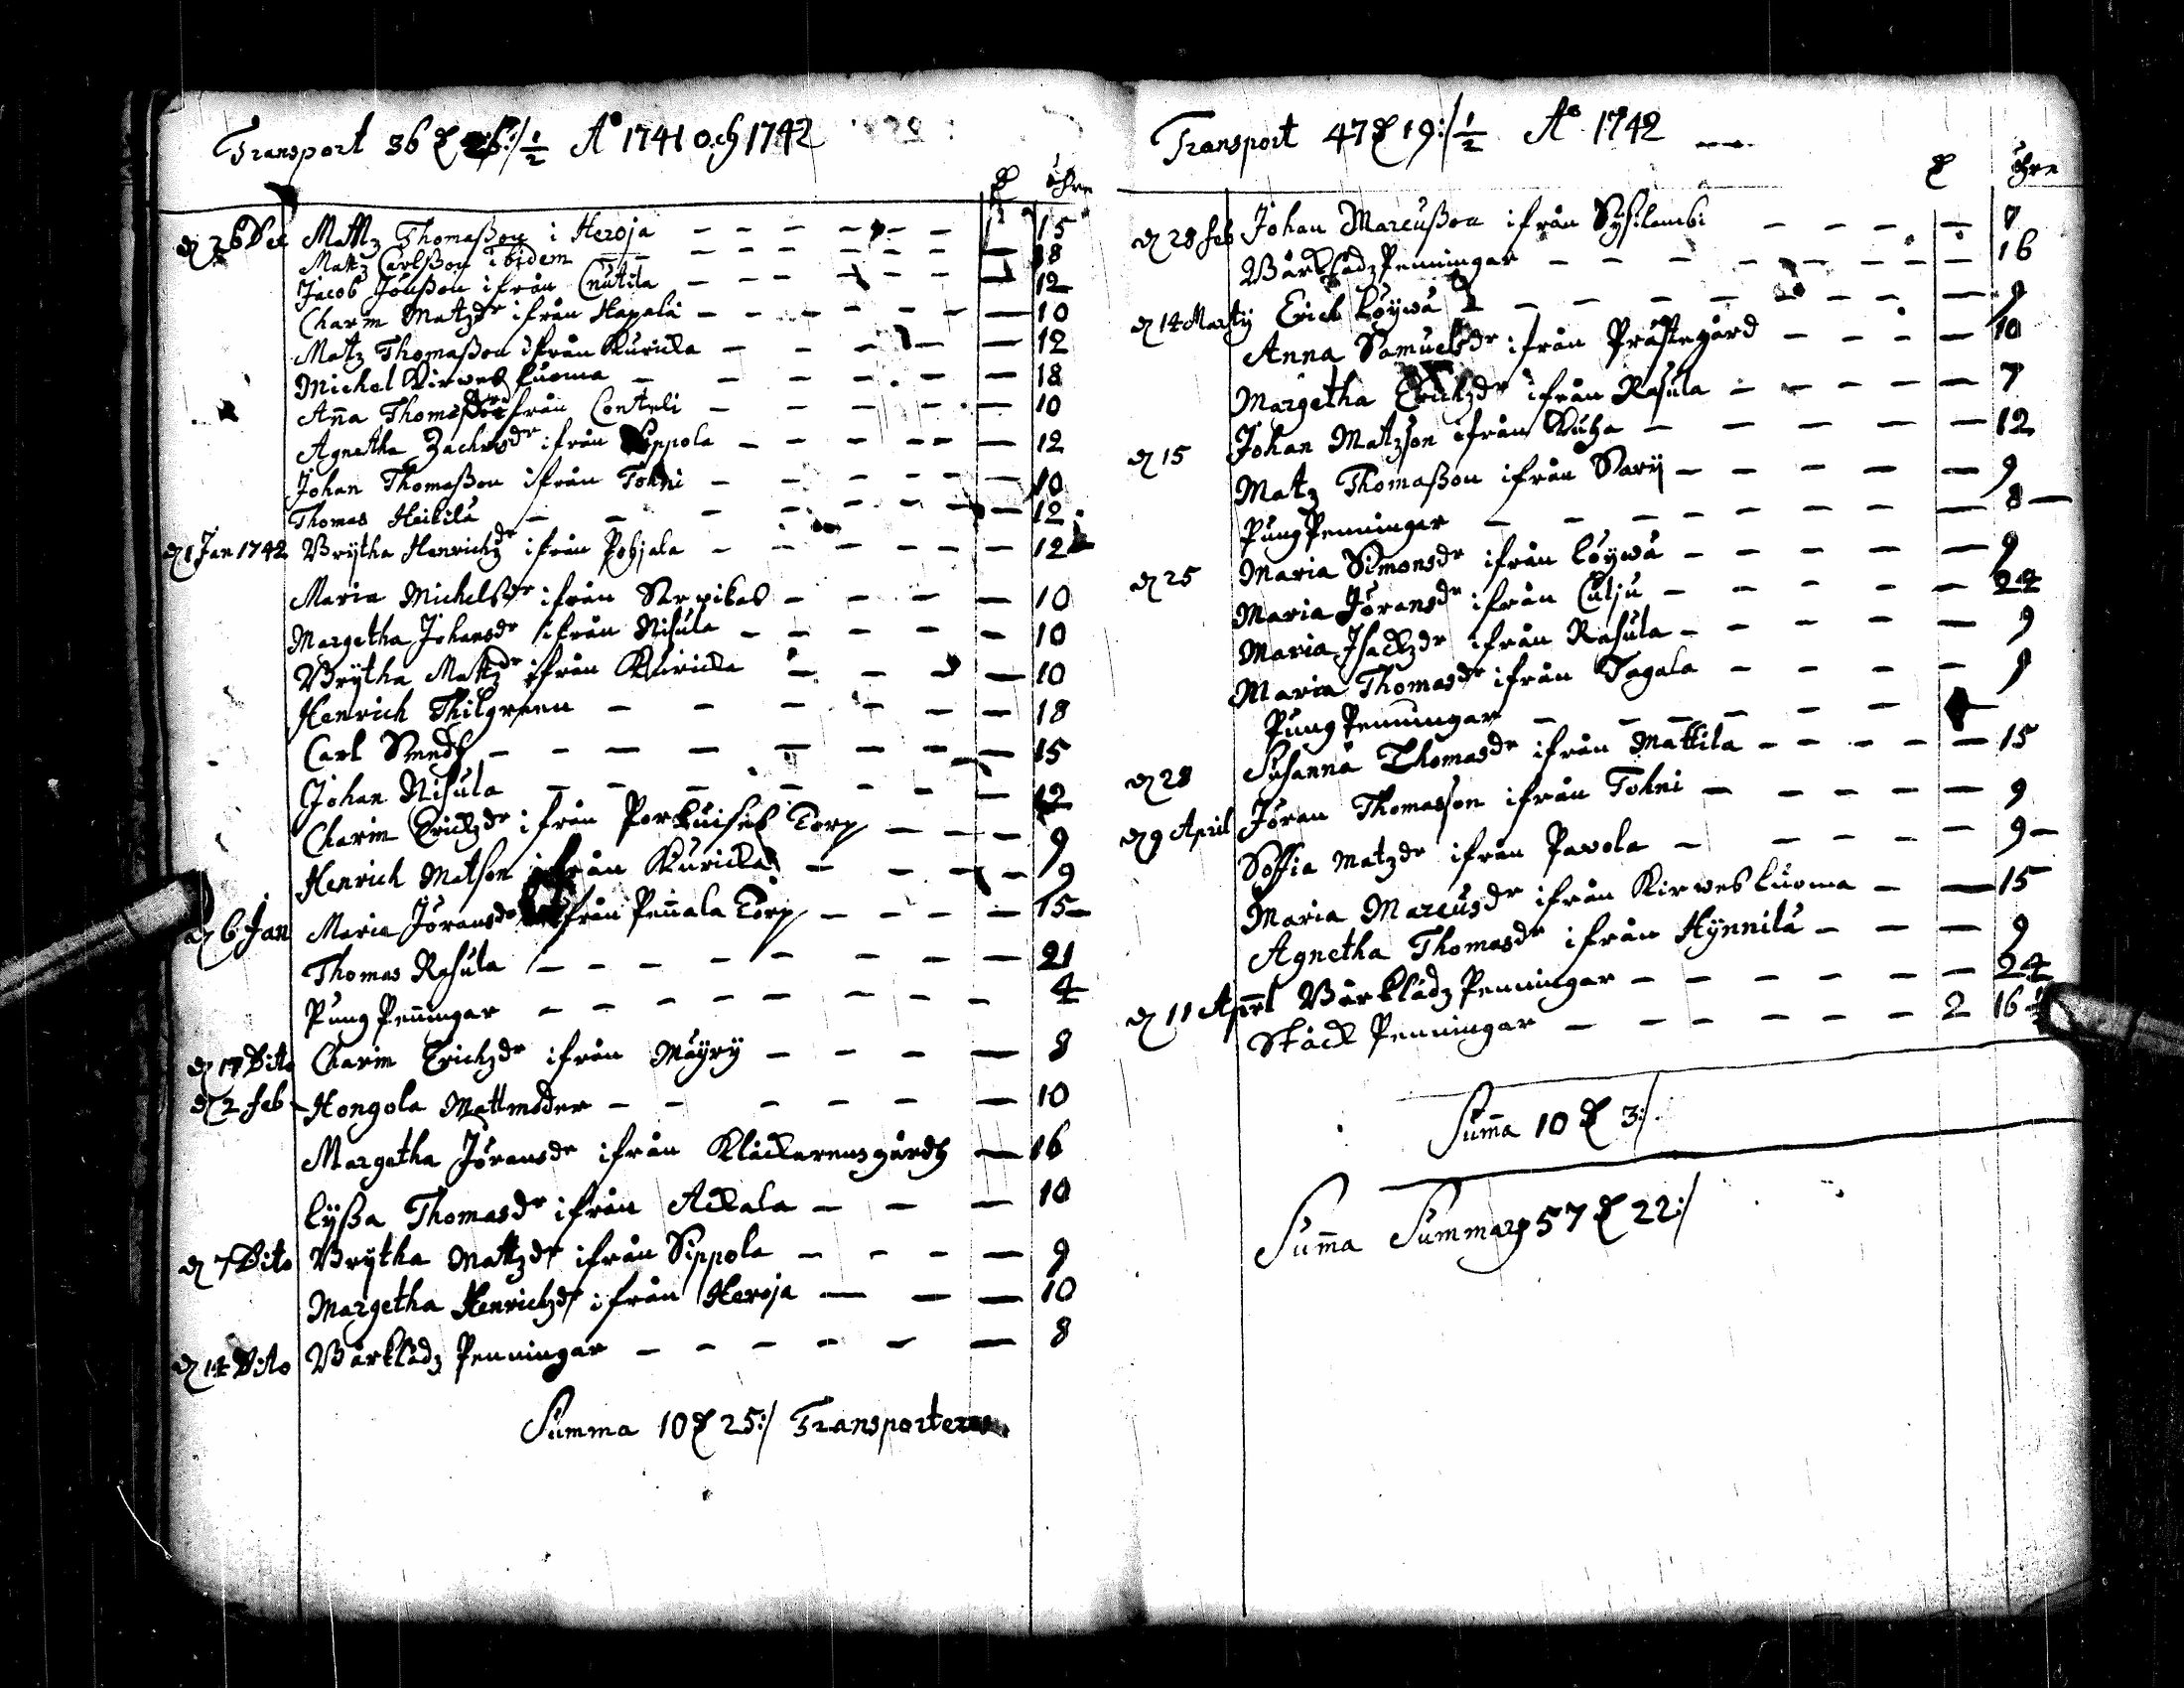 Transport 36 D 26:/ ½ Aº 1741 och 1742
D öhre
d 26 Dec Mattz Thomaßon i Heroja — 15
Matz Carlßon ibidem — 18
Jacob Jönßon ifrån Cnutila — 12
Charin Matzdr ifrån Hapala — 10
Matz Thomaßon ifrån Kuricka — 12
Michel Kirwes luoma — 18
Ana Thomasdr ifrån Conteli — 10
Agnetha Zachrisdr ifrån Sippola — 12
Johan Thomaßon ifrån Tohni — 10
Thomas Heikilä — 12
d 1 Jan 1742 Brÿtha Henrichzdr ifrån Pohjala — 12
Maria Michelsdr ifrån Särpikas — 10
Margetha Johansdr ifrån Nisula — 10
Brÿtha Mattzdr ifrån Kuricka — 10
Henrich Thilgreen — 18
Carl Smedh — 15
Johan Nisula — 12
Charin Erickzdr ifrån Porkuises Torp — 9
Henrich Matson ifrån Kuricka — 9
d 6 Jan Maria Jöransdr ifrån Penala Torp — 15
Thomas Rasula — 21
Pung Peningar — 4
d 17 Dito Charin Erichzdr ifrån Mäÿrÿ — 8
d 2 feb Hongola Mattmoder — 10
Margetha Jöransdr ifrån Kläckarens gårdh — 16
Lÿßa Thomasdr ifrån Ackala — 10
d 7 Dito Brÿtha Mattzdr ifrån Sippola — 9
Margetha Henrichzdr ifrån Heroja — 10
d 14 Dito Bårklädz Penningar — 8
Summa 10 D 25:/ Transporteras
Transport 47 D 19:/ ½ Aº 1742
D öhre
d 28 feb Johan Marcußon ifrån Sÿsilambi — 7
Bårklädz Penningar — 16
d 14 Martÿ Erich Löÿwä — 9
Anna Samuelsdr ifrån Prästegård — 10
Margetha Erichzdr ifrån Rasula — 7
d 15 Johan Matzson ifrån Kuha — 12
Matz Thomaßon ifrån Sarÿ — 9
Pung Penningar — 8
d 25 Maria Simonsdr ifrån Löÿwä — 9
Maria Jöransdr ifrån Culju — 24
Maria Isackzdr ifrån Rasula — 9
Maria Thomasdr ifrån Tagala — 9
Pung Penningar —
d 28 Susanna Thomasdr ifrån Mattila — 15
d 9 April Jöran Thomasson ifrån Tohni — 9
Soffia Matzdr ifrån Pavola — 9
Maria Marcusdr ifrån Kirwes luoma — 15
Agnetha Thomasdr ifrån Hÿnnilä — 9
d 11 April Bårklädz Penningar — 24
Stäck Penningar — 2 16
Suma 10 D 3:/
Suma Summarum 57 D 22:/